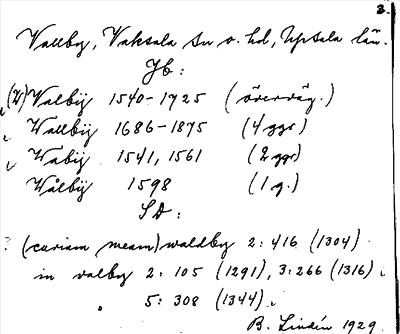 3.
Vallby, Vaksala sn o. hd, Uppsala län.
Jb:
(W)Valbÿ 1540-1725 (överväg.)
Wallbÿ 1686-1875 (4 ggr)
Wabÿ 1541, 1561 (2 ggr)
Wålbÿ 1598 (1 g.)
SD:
? (curiam meam) waldby 2:416 (1304)
in valby 2:105 (1291), 3:266 (1316)
5:308 (1344)
B. Lindén 1929.